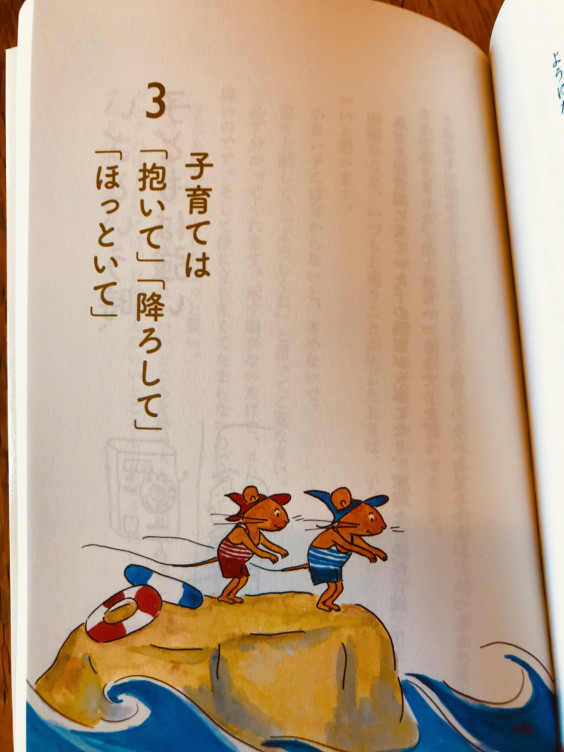 3
子育ては
「抱いて」「降ろして」
「ほっといて」